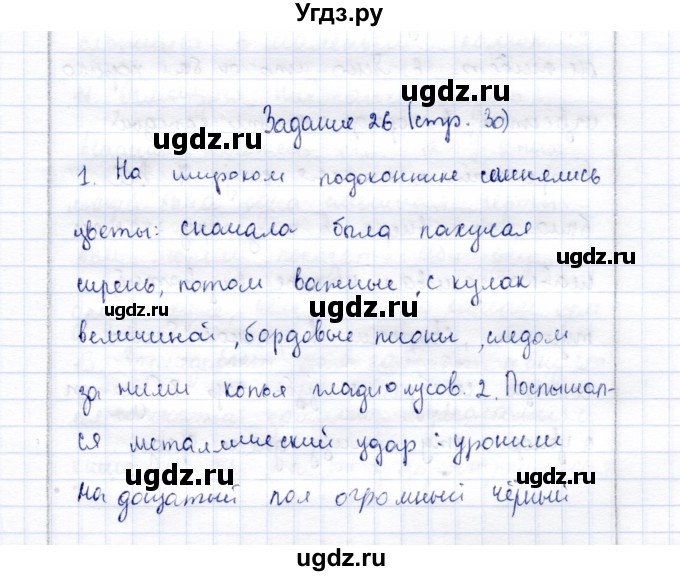 Угдз.ру
ugdz.ru
Задание 26 (стр. 30)
ugdz.ru
1. На широком подоконнике сменялись
ugdz.ru
цветы: сначала была пахучая
ugdz.ru
сирень, потом важные, с кулак
ugdz.ru
ugdz.ru
величиной, бордовые пионы, следом
за ними копья гладиолусов. 2. Послышал-
ся металлический удар: уронили
ugdz.ru
ugdz.ru
на дощатый пол огромный чёрный
ugdz.ru